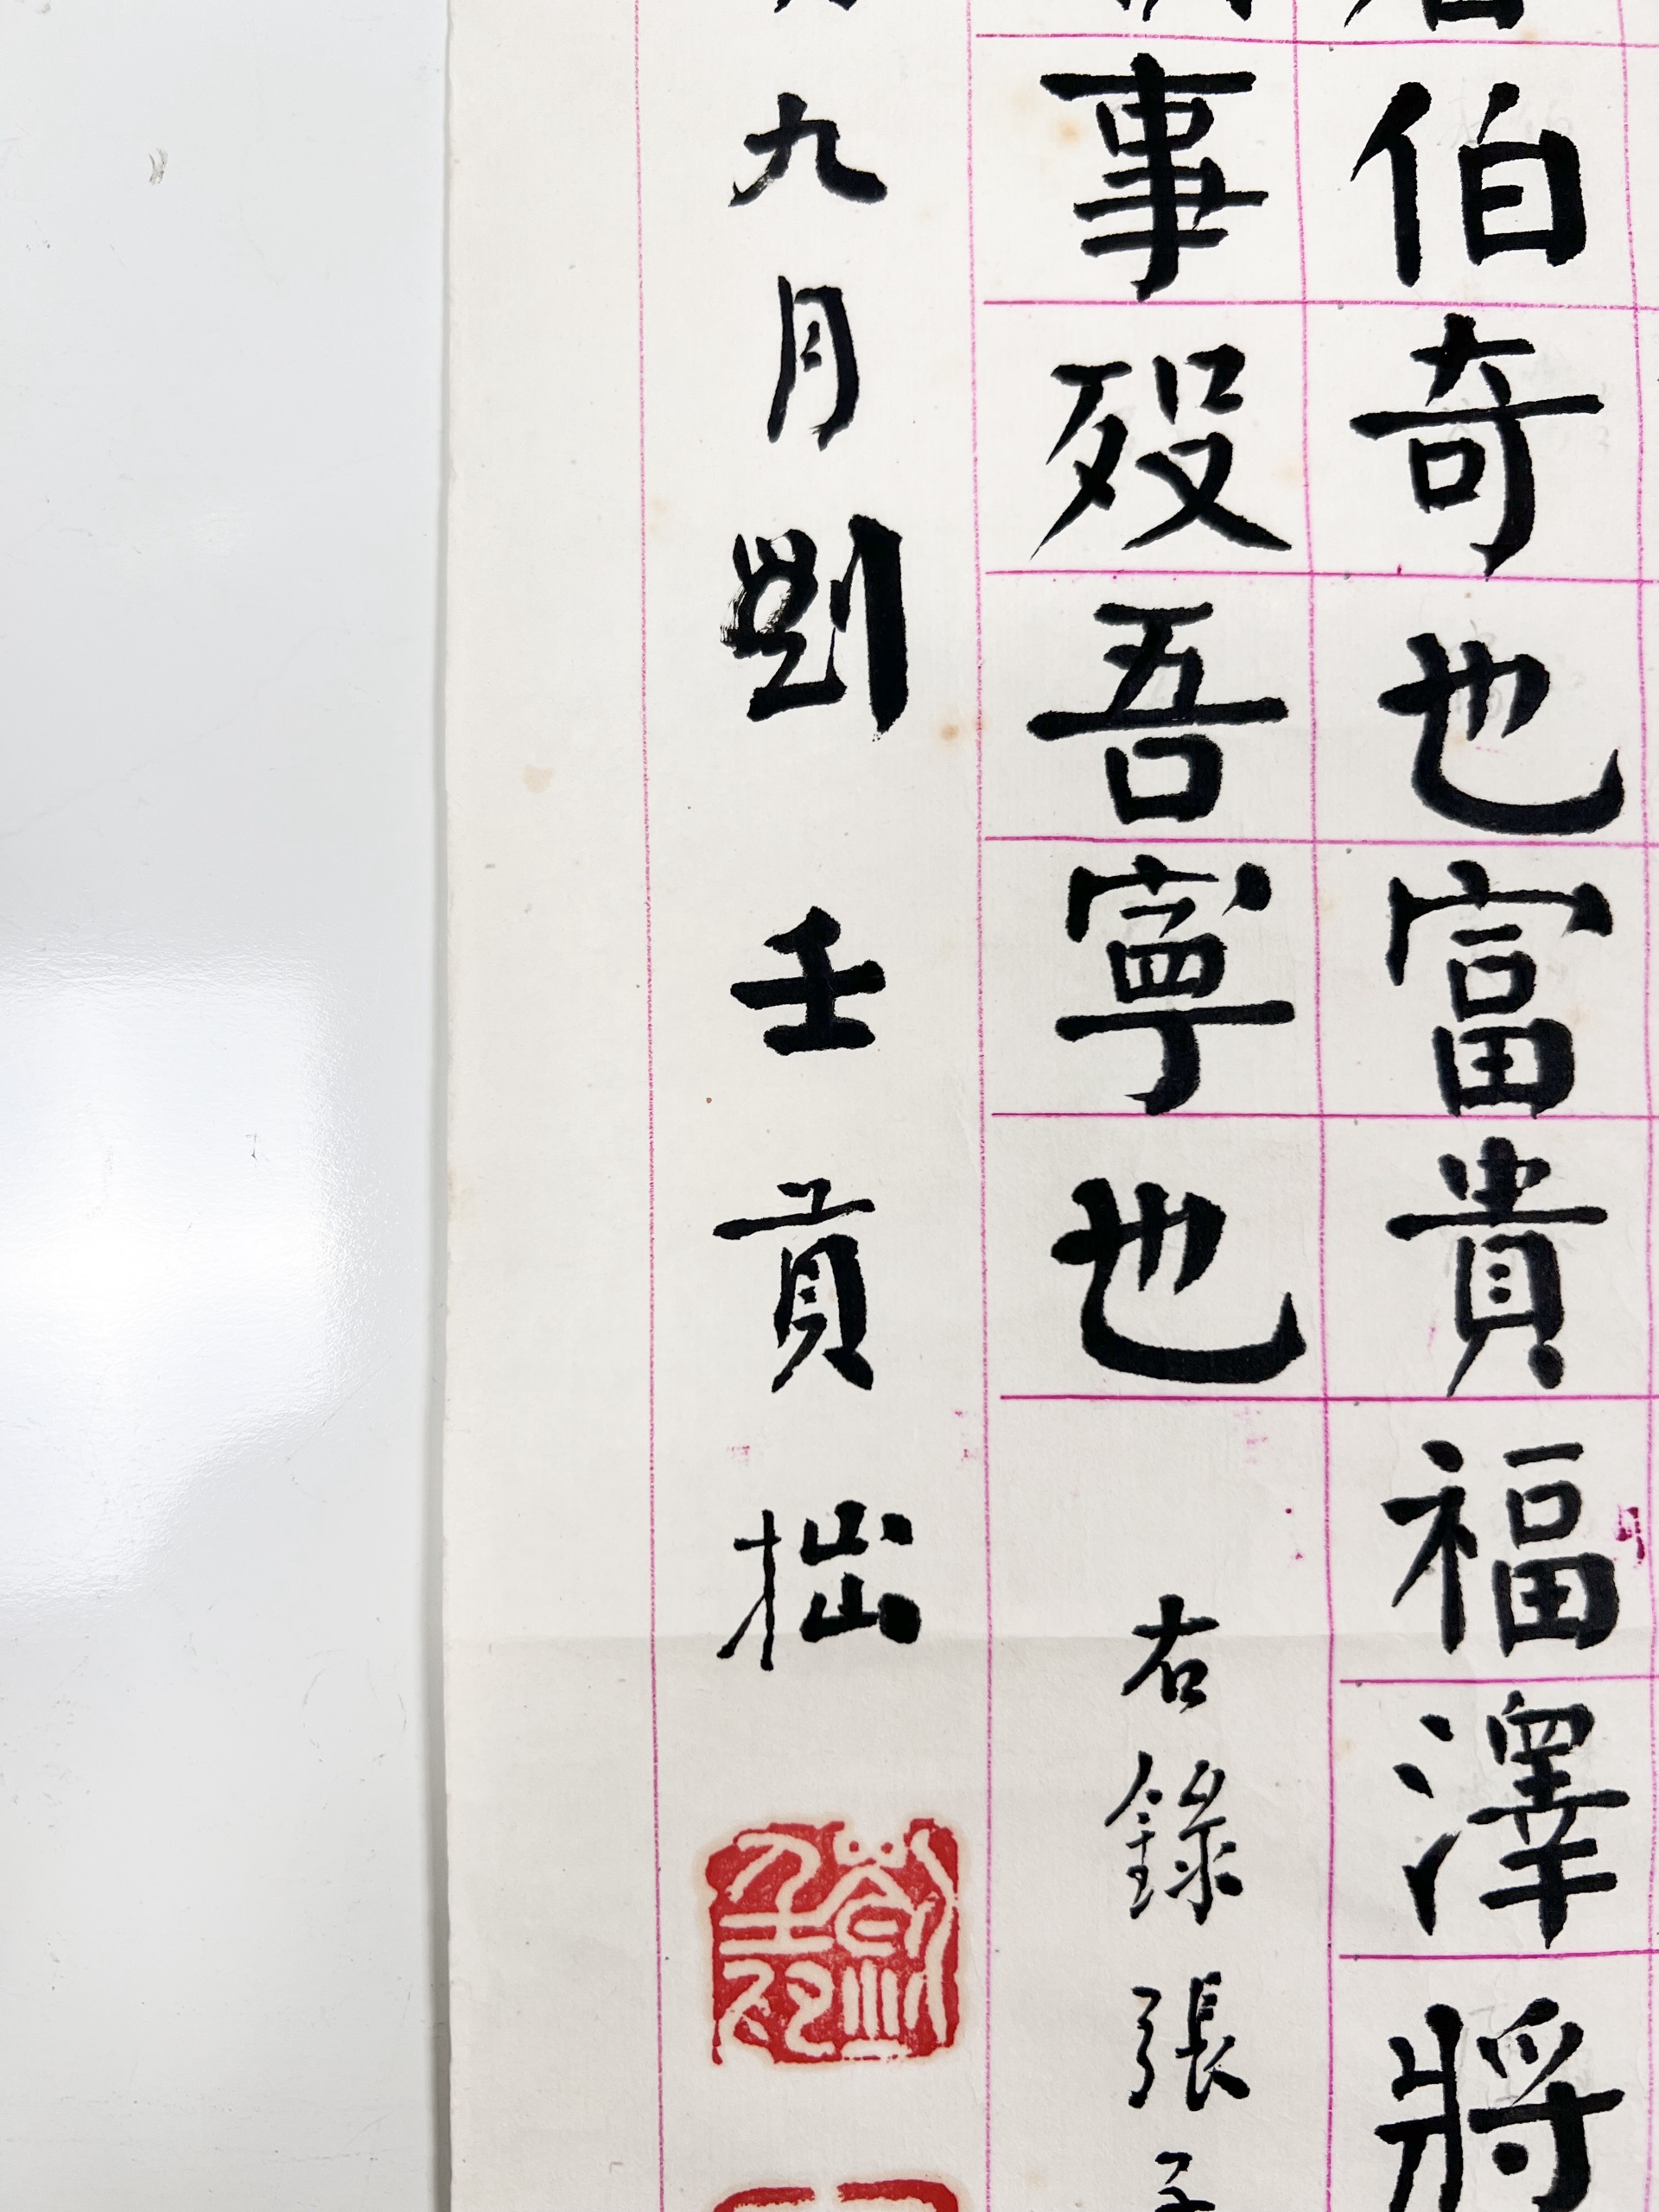 伯奇也富貴福澤將
事歿吾寧也 右錄張子
九月劉 壬貢拙